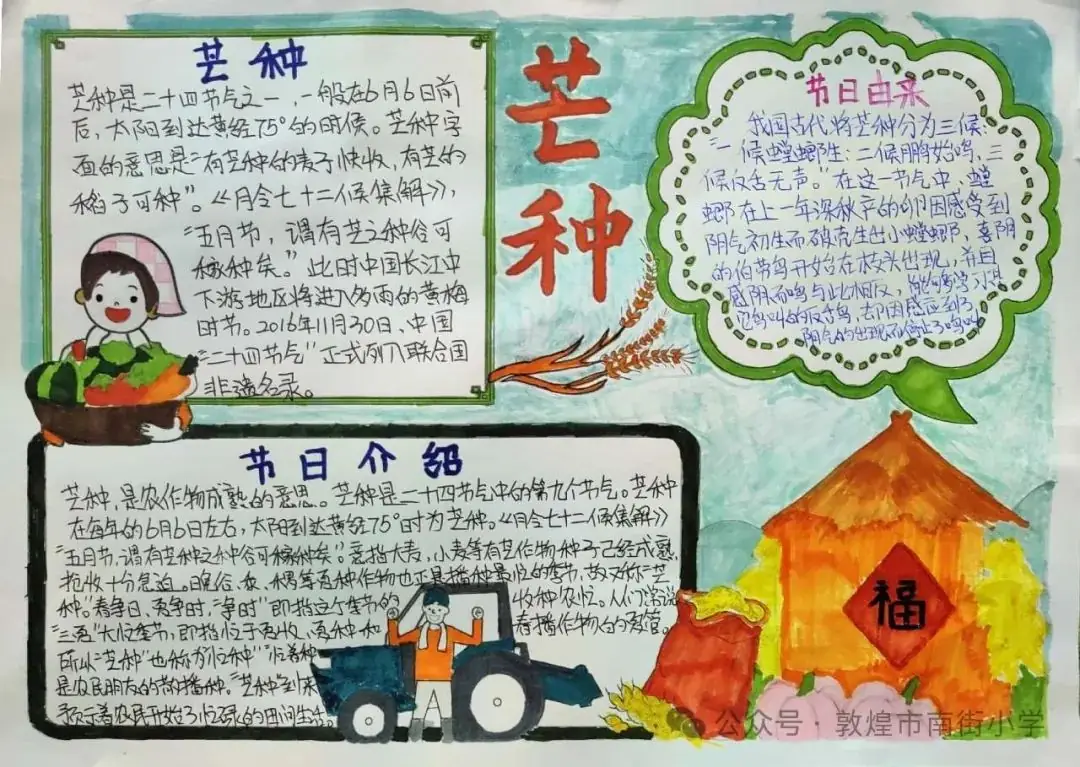 芒种
芒种是二十四节气之一，一般在6月6日前
后，太阳到达黄经75°的时候。芒种字
面的意思是“有芒种的麦子快收，有芒的
稻子可种”。《月令七十二候集解》，
“五月节，谓有芒之种谷可
稼种矣。”此时中国长江中
下游地区将进入多雨的黄梅
时节。2016年11月30日、中国
“二十四节气”正式列入联合国
非遗名录。
芒种
节日由来
我国古代将芒种分为三候：
“一候螳螂生；二候鹏始鸣，三
候反舌无声。”在这一节气中、螳
螂在上一年深秋产的卵因感受到
阴气初生而破壳生出小螳螂、喜阴
的伯劳鸟开始在枝头出现，并且
感阴而鸣与此相反，能够学习其
它鸟叫的反舌鸟，却因感应到了
阴气的出现而停止了鸣叫
节日介绍
芒种，是农作物成熟的意思。芒种是二十四节气中的第九个节气。芒种
在每年的6月6日左右，太阳到达黄经75°时为芒种。《月令七十二候集解》
“五月节，谓有芒种之种谷可稼种矣”。意指大麦，小麦等有芒作物种子已经成熟，
抢收十分急迫。晚谷、黍、稷等夏种作物也正是播种最忙的季节，故又称“芒
种”。春争日、夏争时、“争时”即指这个季节的 收种农忙。人们常说
“三夏”大忙季节，即指忙于夏收、夏种和 春播作物的夏管。
所以“芒种”也称为“忙种”“忙着种
是农民朋友的 播种。“芒种”到来
预示着农民开始了忙碌的田间生活。
福
公众号·敦煌市南街小学